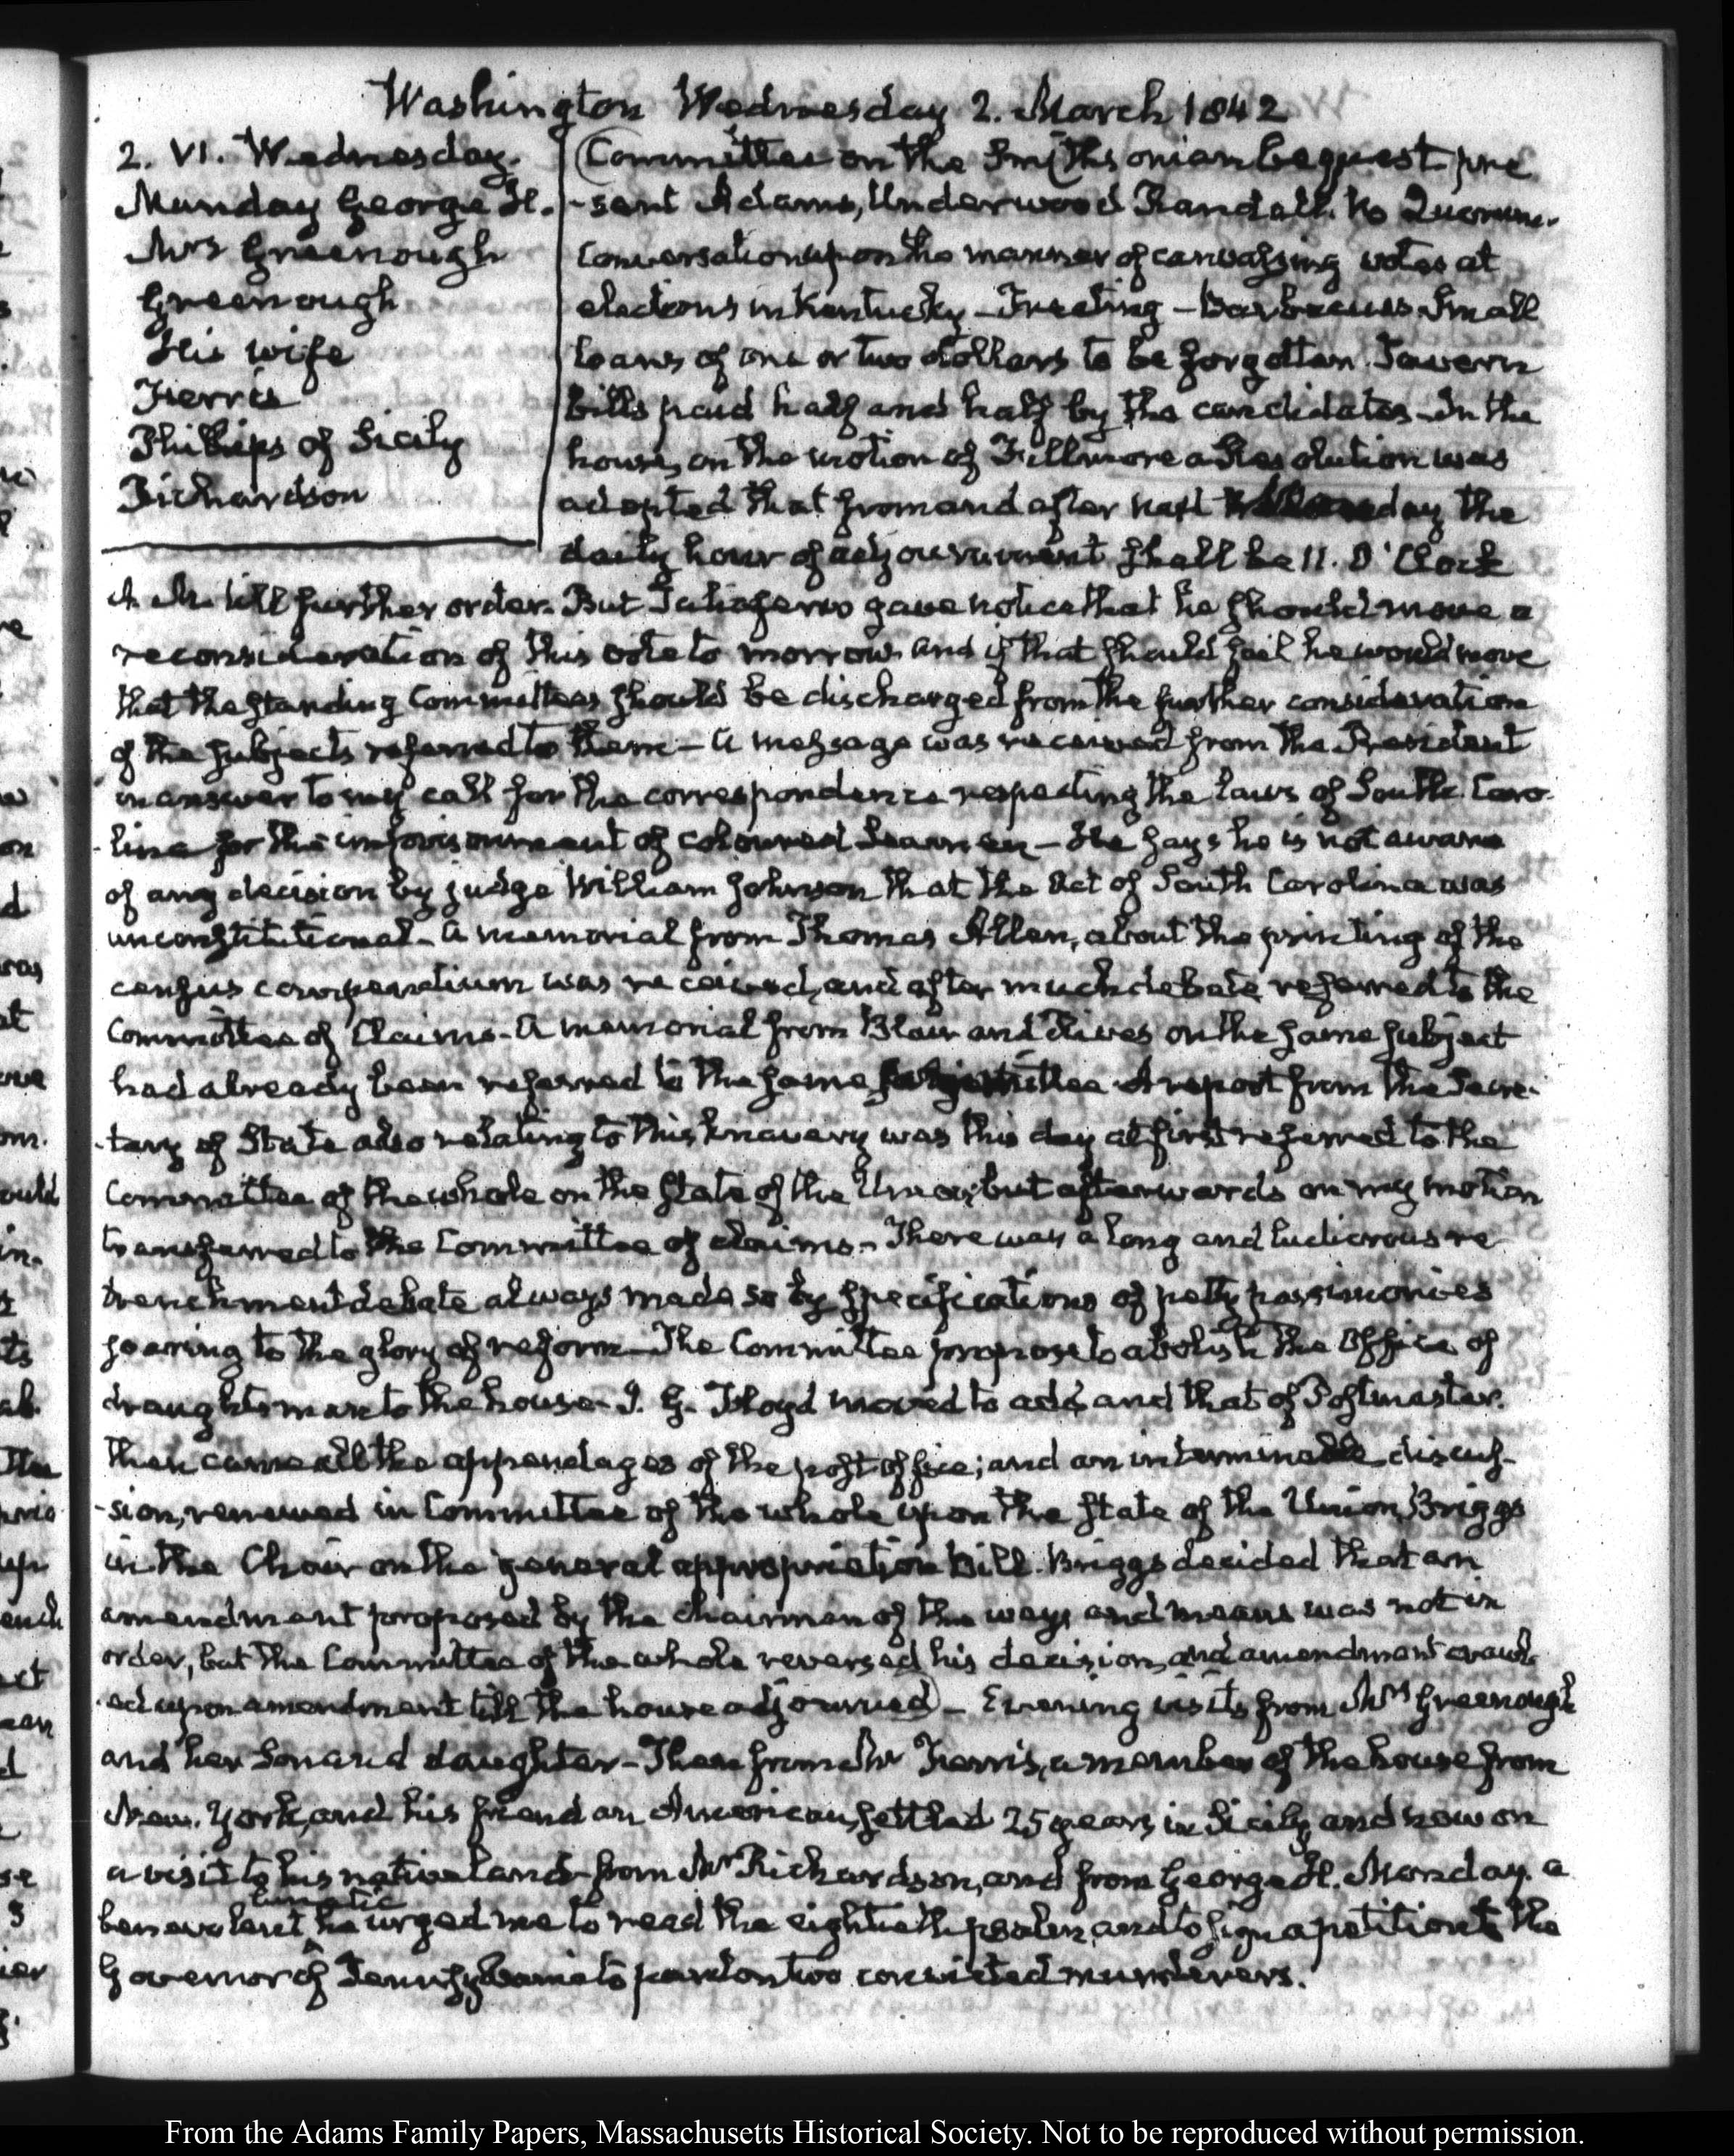 Washington Wednesday 2. March 1842
2. VI. Wednesday.
Munday George H.
Mrs Greenough
Greenough
His wife
Ferris
Phillips of Sicily
Richardson
(Committee on the Smithsonian bequest pre
-sent Adams, Underwood Randall. No Quorum.
Conversation upon the manner of canvassing votes at
elections in Kentucky – Treating – Barbecues Small
loans of one or two dollars to be forgotten. Tavern
bills paid half and half by the candidates – In the
house, on the motion of Fillmore a Resolution was
adopted that from and after next day the
daily hour of adjournment shall be 11. O'Clock
A. M. till further order. But Taliaferro gave notice that he should move a
reconsideration of this vote to morrow and if that should fail he would move
that the standing Committees should be discharged from the further consideration
of the subjects referred to them – A message was received from the President
in answer to my call for the correspondence respecting the laws of South Caro-
-lina for the imprisonment of coloured Seamen – He says he is not aware
of any decision by judge William Johnson that the Act of South Carolina was
unconstitutional – A memorial from Thomas Allen, about the printing of the
census compendium was received, and after much debate referred to the
Committee of Claims – A memorial from Blair and Rives on the same subject
had already been referred to the same A report from the Secre-
-tary of State also relating to this knavery was this day at first referred to the
Committee of the whole on the state of the Union; but afterwards on my motion
transferred to the Committee of claims – There was a long and ludicrous re
trenchment debate always made so by specifications of petty parsimonies
soaring to the glory of reform – The Committee propose to abolish the Office of
draughtsman to the house – J. G. Floyd moved to add, and that of Postmaster.
Then came all the appendages of the post office; and an interminable discus-
-sion, renewed in Committee of the whole upon the state of the Union, Briggs
in the Chair on the general appropriation Bill. Briggs decided that an
amendment proposed by the chairman of the ways and means was not in
order, but the Committee of the whole reversed his decision, and amendment crawl-
ed upon amendment till the house adjourned) – Evening visits from Mrs Greenough
and her Son and daughter – Then from Mr Ferris, a member of the house from
New. York, and his friend an American, settled 25 years in Sicily and now on
a visit to his native land – from Mr Richardson, and from George H. Monday. a
benevolent lunatic he urged me to read the eightieth psalm, and to sign a petition to the
Governor of Pennsylvania to pardon two convicted murderers.
From the Adams Family Papers, Massachusetts Historical Society. Not to be reproduced without permission.